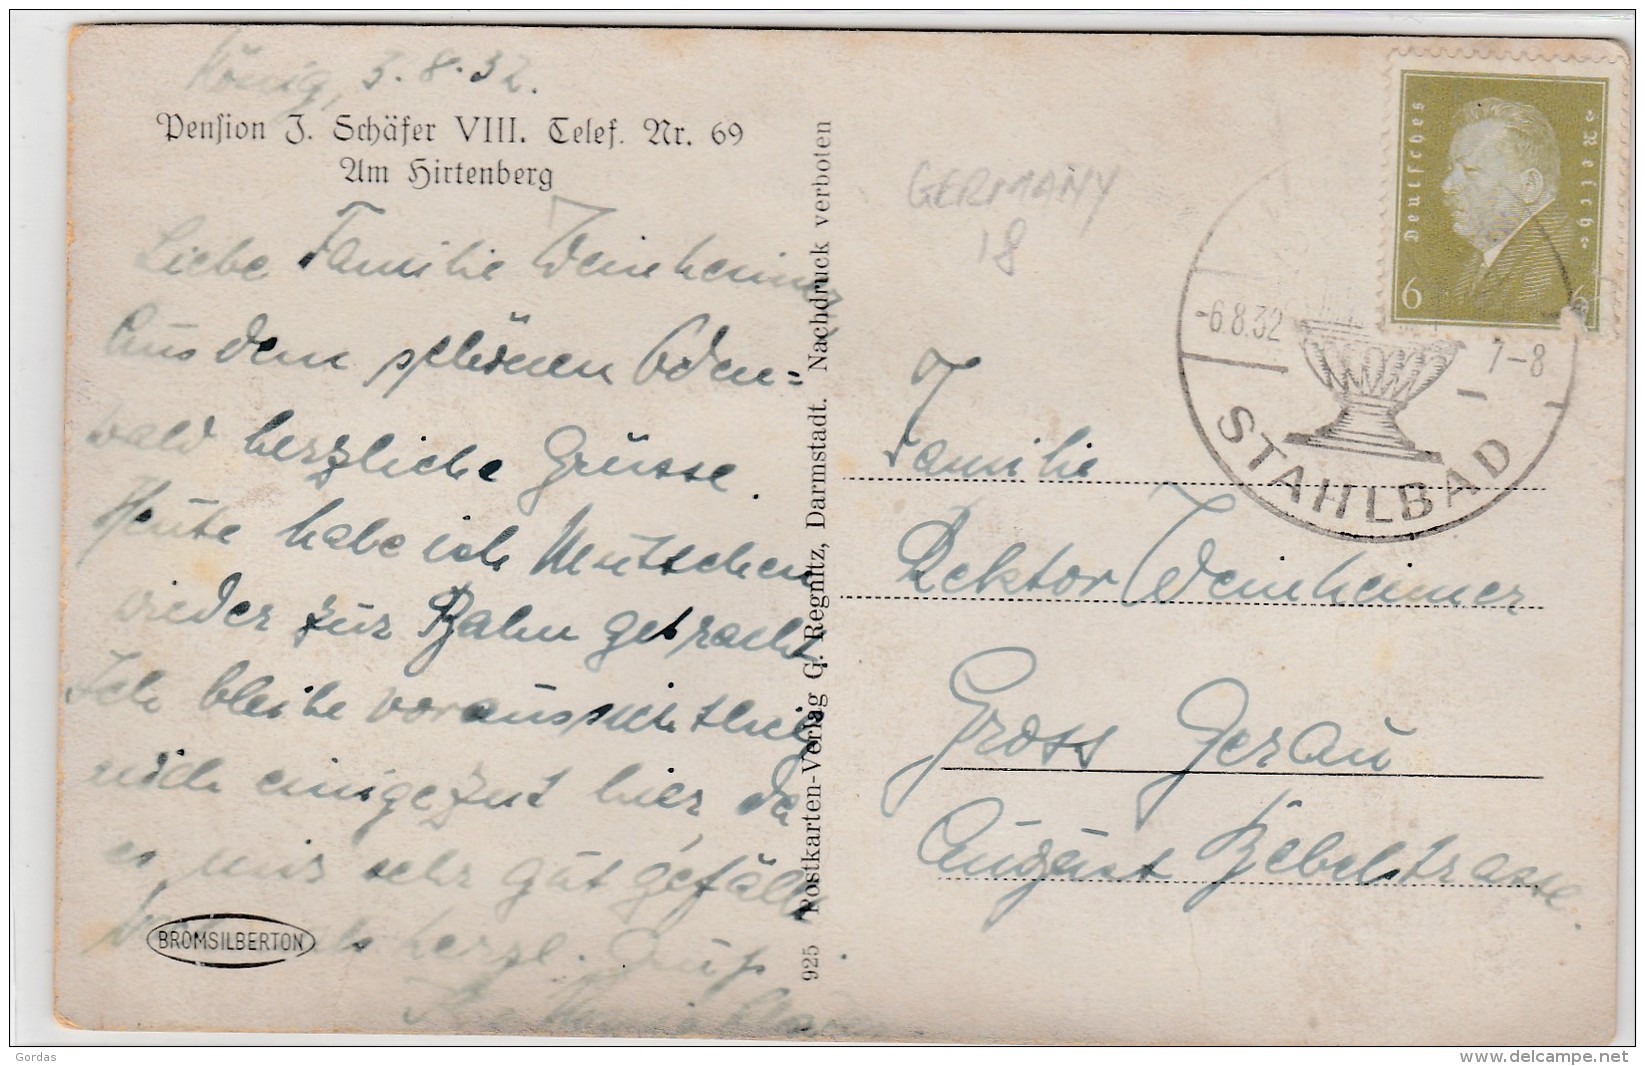 König, 3.8.32.
Pension J. Schäfer VIII. Telef. Nr. 69
Am Hirtenberg
Liebe Familie Weinheimer
Aus dem schönen Oden=
wald herzliche Grüsse.
Heute habe ich Muttchen
wieder zur Bahn gebracht.
Ich bleibe voraussichtlich
noch einige Zeit hier da
es mir sehr gut gefällt
herzl. Gruß
BROMSILBERTON
925 Postkarten-Verlag G. Regnitz, Darmstadt. Nachdruck verboten
GERMANY
18
Deutsches Reich
6 6
-6.8.32 7-8
STAHLBAD
Familie
Rektor Weinheimer
Gross Gerau
August Bebelstrasse.
Gordas
www.delcampe.net